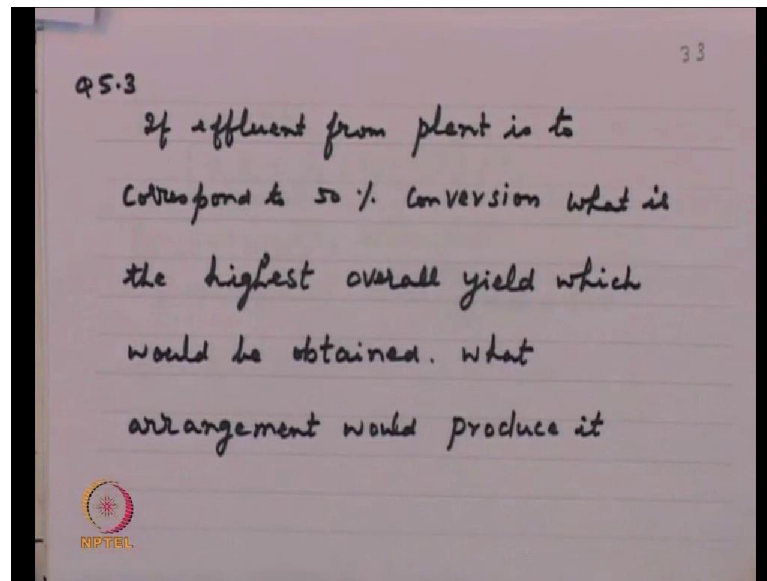 33
Q 5.3
If effluent from plant is to
correspond to 50 %. conversion what is
the highest overall yield which
would be obtained. what
arrangement would produce it
NPTEL